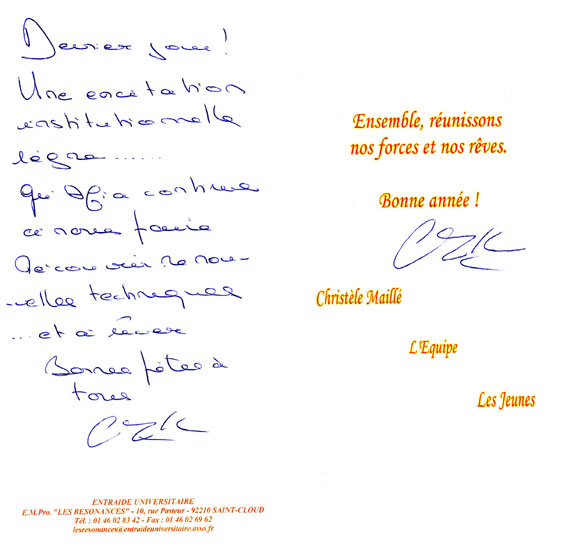 Dernier jour !
Une excitation
institutionnelle
règne ......
Qui continue
à nous faire
découvrir de nou-
velles techniques
... et à rêver
Bonnes fêtes à
tous
Ensemble, réunissons
nos forces et nos rêves.
Bonne année !
Christèle Maillé
L'Equipe
Les Jeunes
ENTRAIDE UNIVERSITAIRE
E.M.Pro. "LES RESONANCES" - 10, rue Pasteur - 92210 SAINT-CLOUD
Tél. : 01 46 02 83 42 - Fax : 01 46 02 69 62
lesresonances@entraideuniversitaire.asso.fr